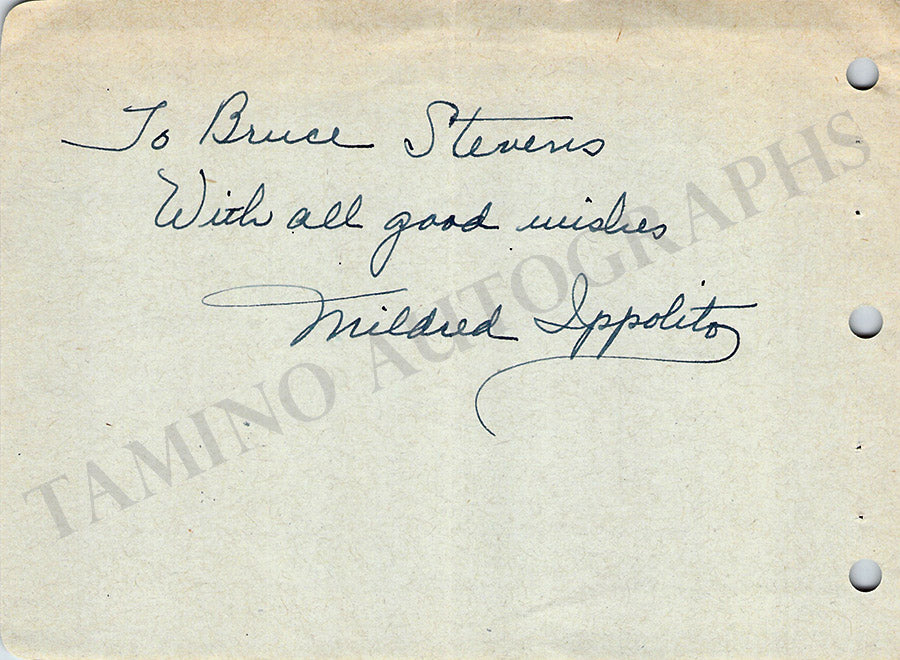 To Bruce Stevens
With all good wishes
Mildred Ippolito
TAMINO AUTOGRAPHS